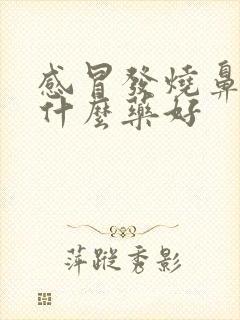 感冒發燒鼻
什麼藥好
萍蹤秀影